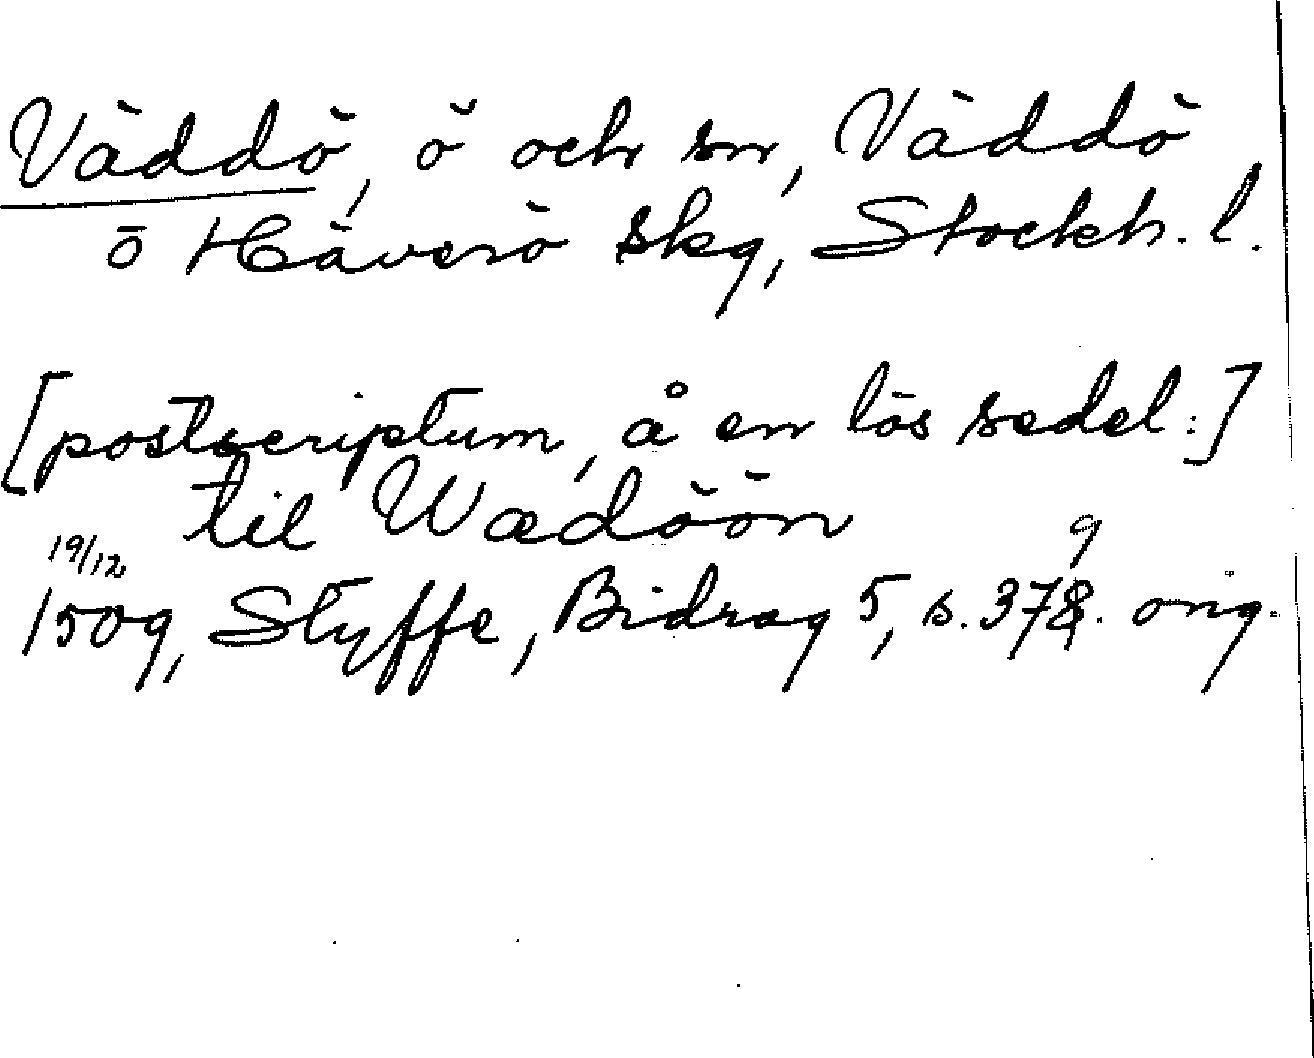 Väddö, ö och sn, Väddö
o Häverö skg, Stockh. l.
[postscriptum, å en lös sedel:]
til Wædöön
19/12 9
1509, Styffe, Bidrag 5, s. 378. orig.